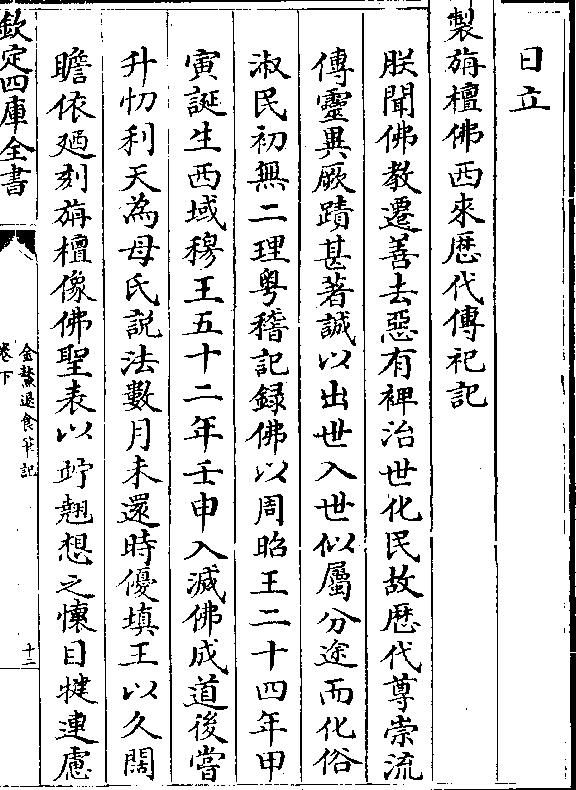 日立
製旃檀佛西來歴代傳祀記
朕聞佛教遷善去惡有裨治世化民故歴代尊崇流
傳靈異厥蹟甚著誠以出世入世似屬分途而化俗
淑民初無二理粤稽記録佛以周昭王二十四年甲
寅誕生西域穆王五十二年壬申入滅佛成道後嘗
升忉利天為母氏説法數月未還時優填王以久闊
瞻依廼刻旃檀像佛聖表以竚翹想之懷目犍連慮
欽定四庫全書
金鰲退食筆記
卷下
十二